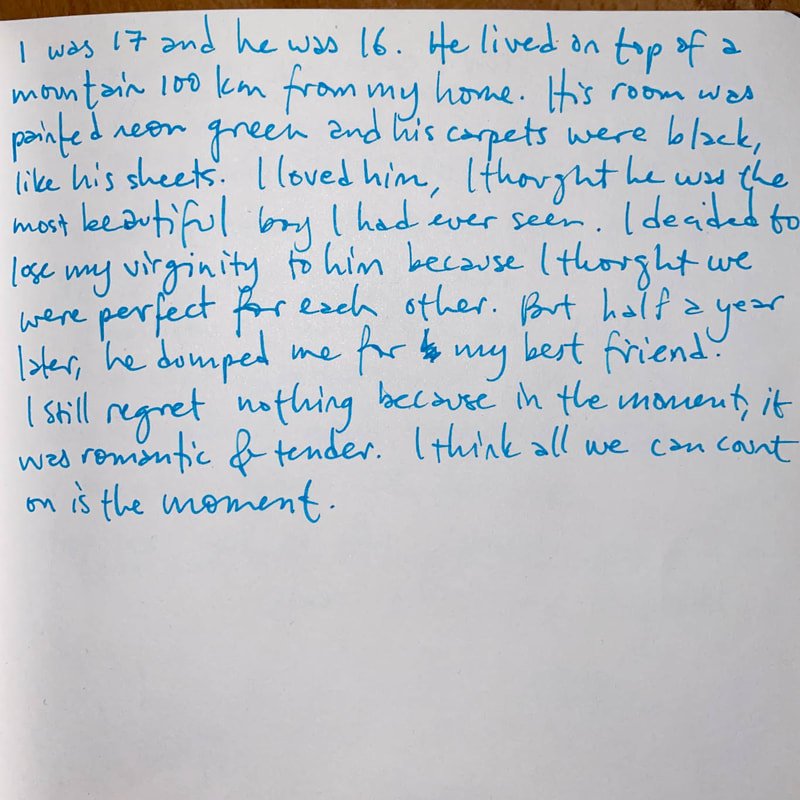 I was 17 and he was 16. He lived on top of a
mountain 100 km from my home. His room was
painted neon green and his carpets were black,
like his sheets. I loved him, I thought he was the
most beautiful boy I had ever seen. I decided to
lose my virginity to him because I thought we
were perfect for each other. But half a year
later, he dumped me for my best friend.
I still regret nothing because in the moment, it
was romantic & tender. I think all we can count
on is the moment.